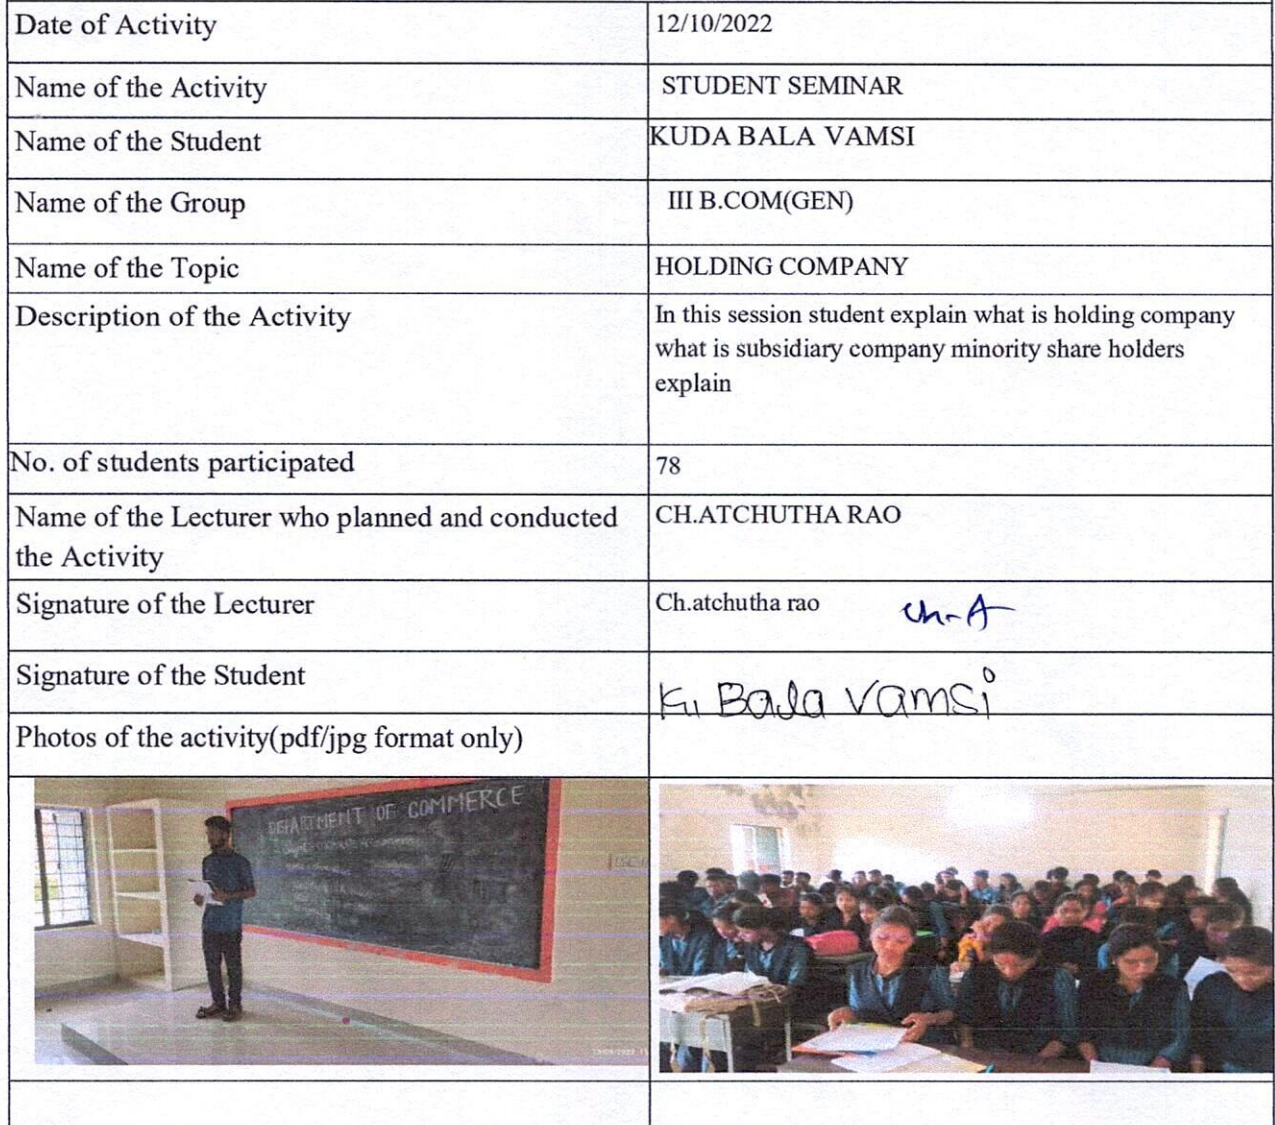 Date of Activity
12/10/2022
Name of the Activity
STUDENT SEMINAR
Name of the Student
KUDA BALA VAMSI
Name of the Group
III B.COM(GEN)
Name of the Topic
HOLDING COMPANY
Description of the Activity
In this session student explain what is holding company
what is subsidiary company minority share holders
explain
No. of students participated
78
Name of the Lecturer who planned and conducted
the Activity
CH.ATCHUTHA RAO
Signature of the Lecturer
Ch.atchutha rao
Ch-A
Signature of the Student
K. Bala Vamsi
Photos of the activity(pdf/jpg format only)
DEPARTMENT OF COMMERCE